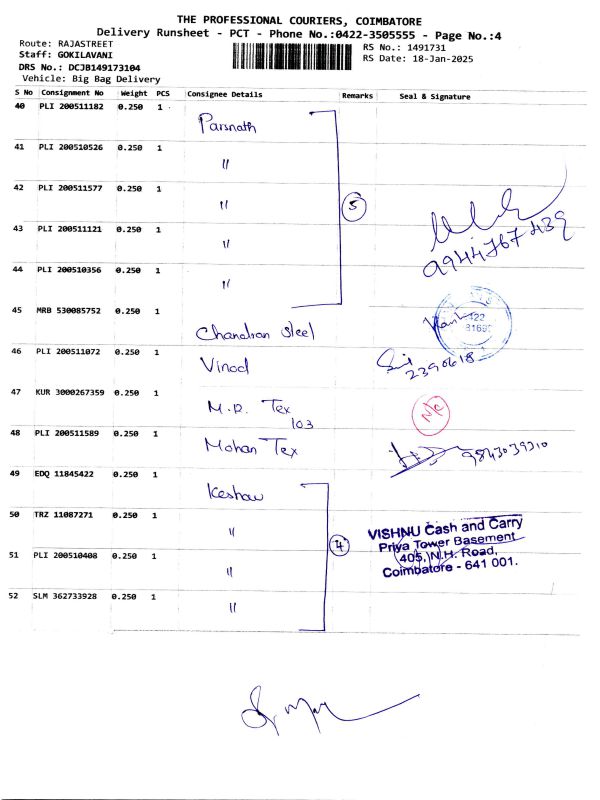 THE PROFESSIONAL COURIERS, COIMBATORE
Delivery Runsheet - PCT - Phone No.:0422-3505555 - Page No.:4
Route: RAJASTREET
Staff: GOKILAVANI
DRS No.: DCJB149173104
Vehicle: Big Bag Delivery
RS No.: 1491731
RS Date: 18-Jan-2025
S No Consignment No Weight PCS Consignee Details Remarks Seal & Signature
40 PLI 200511182 0.250 1 Parsnath
41 PLI 200510526 0.250 1 "
42 PLI 200511577 0.250 1 " 5
43 PLI 200511121 0.250 1 "
9944767439
44 PLI 200510356 0.250 1 "
45 MRB 530085752 0.250 1 Chandran Steel
46 PLI 200511072 0.250 1 Vinod 2390618
47 KUR 3000267359 0.250 1 M.R. Tex N/C
103
48 PLI 200511589 0.250 1 Mohan Tex 9843039310
49 EDQ 11845422 0.250 1 Keshav
50 TRZ 11087271 0.250 1 " 4
51 PLI 200510408 0.250 1 "
52 SLM 362733928 0.250 1 "
VISHNU Cash and Carry
Priya Tower Basement
405, N.H. Road,
Coimbatore - 641 001.